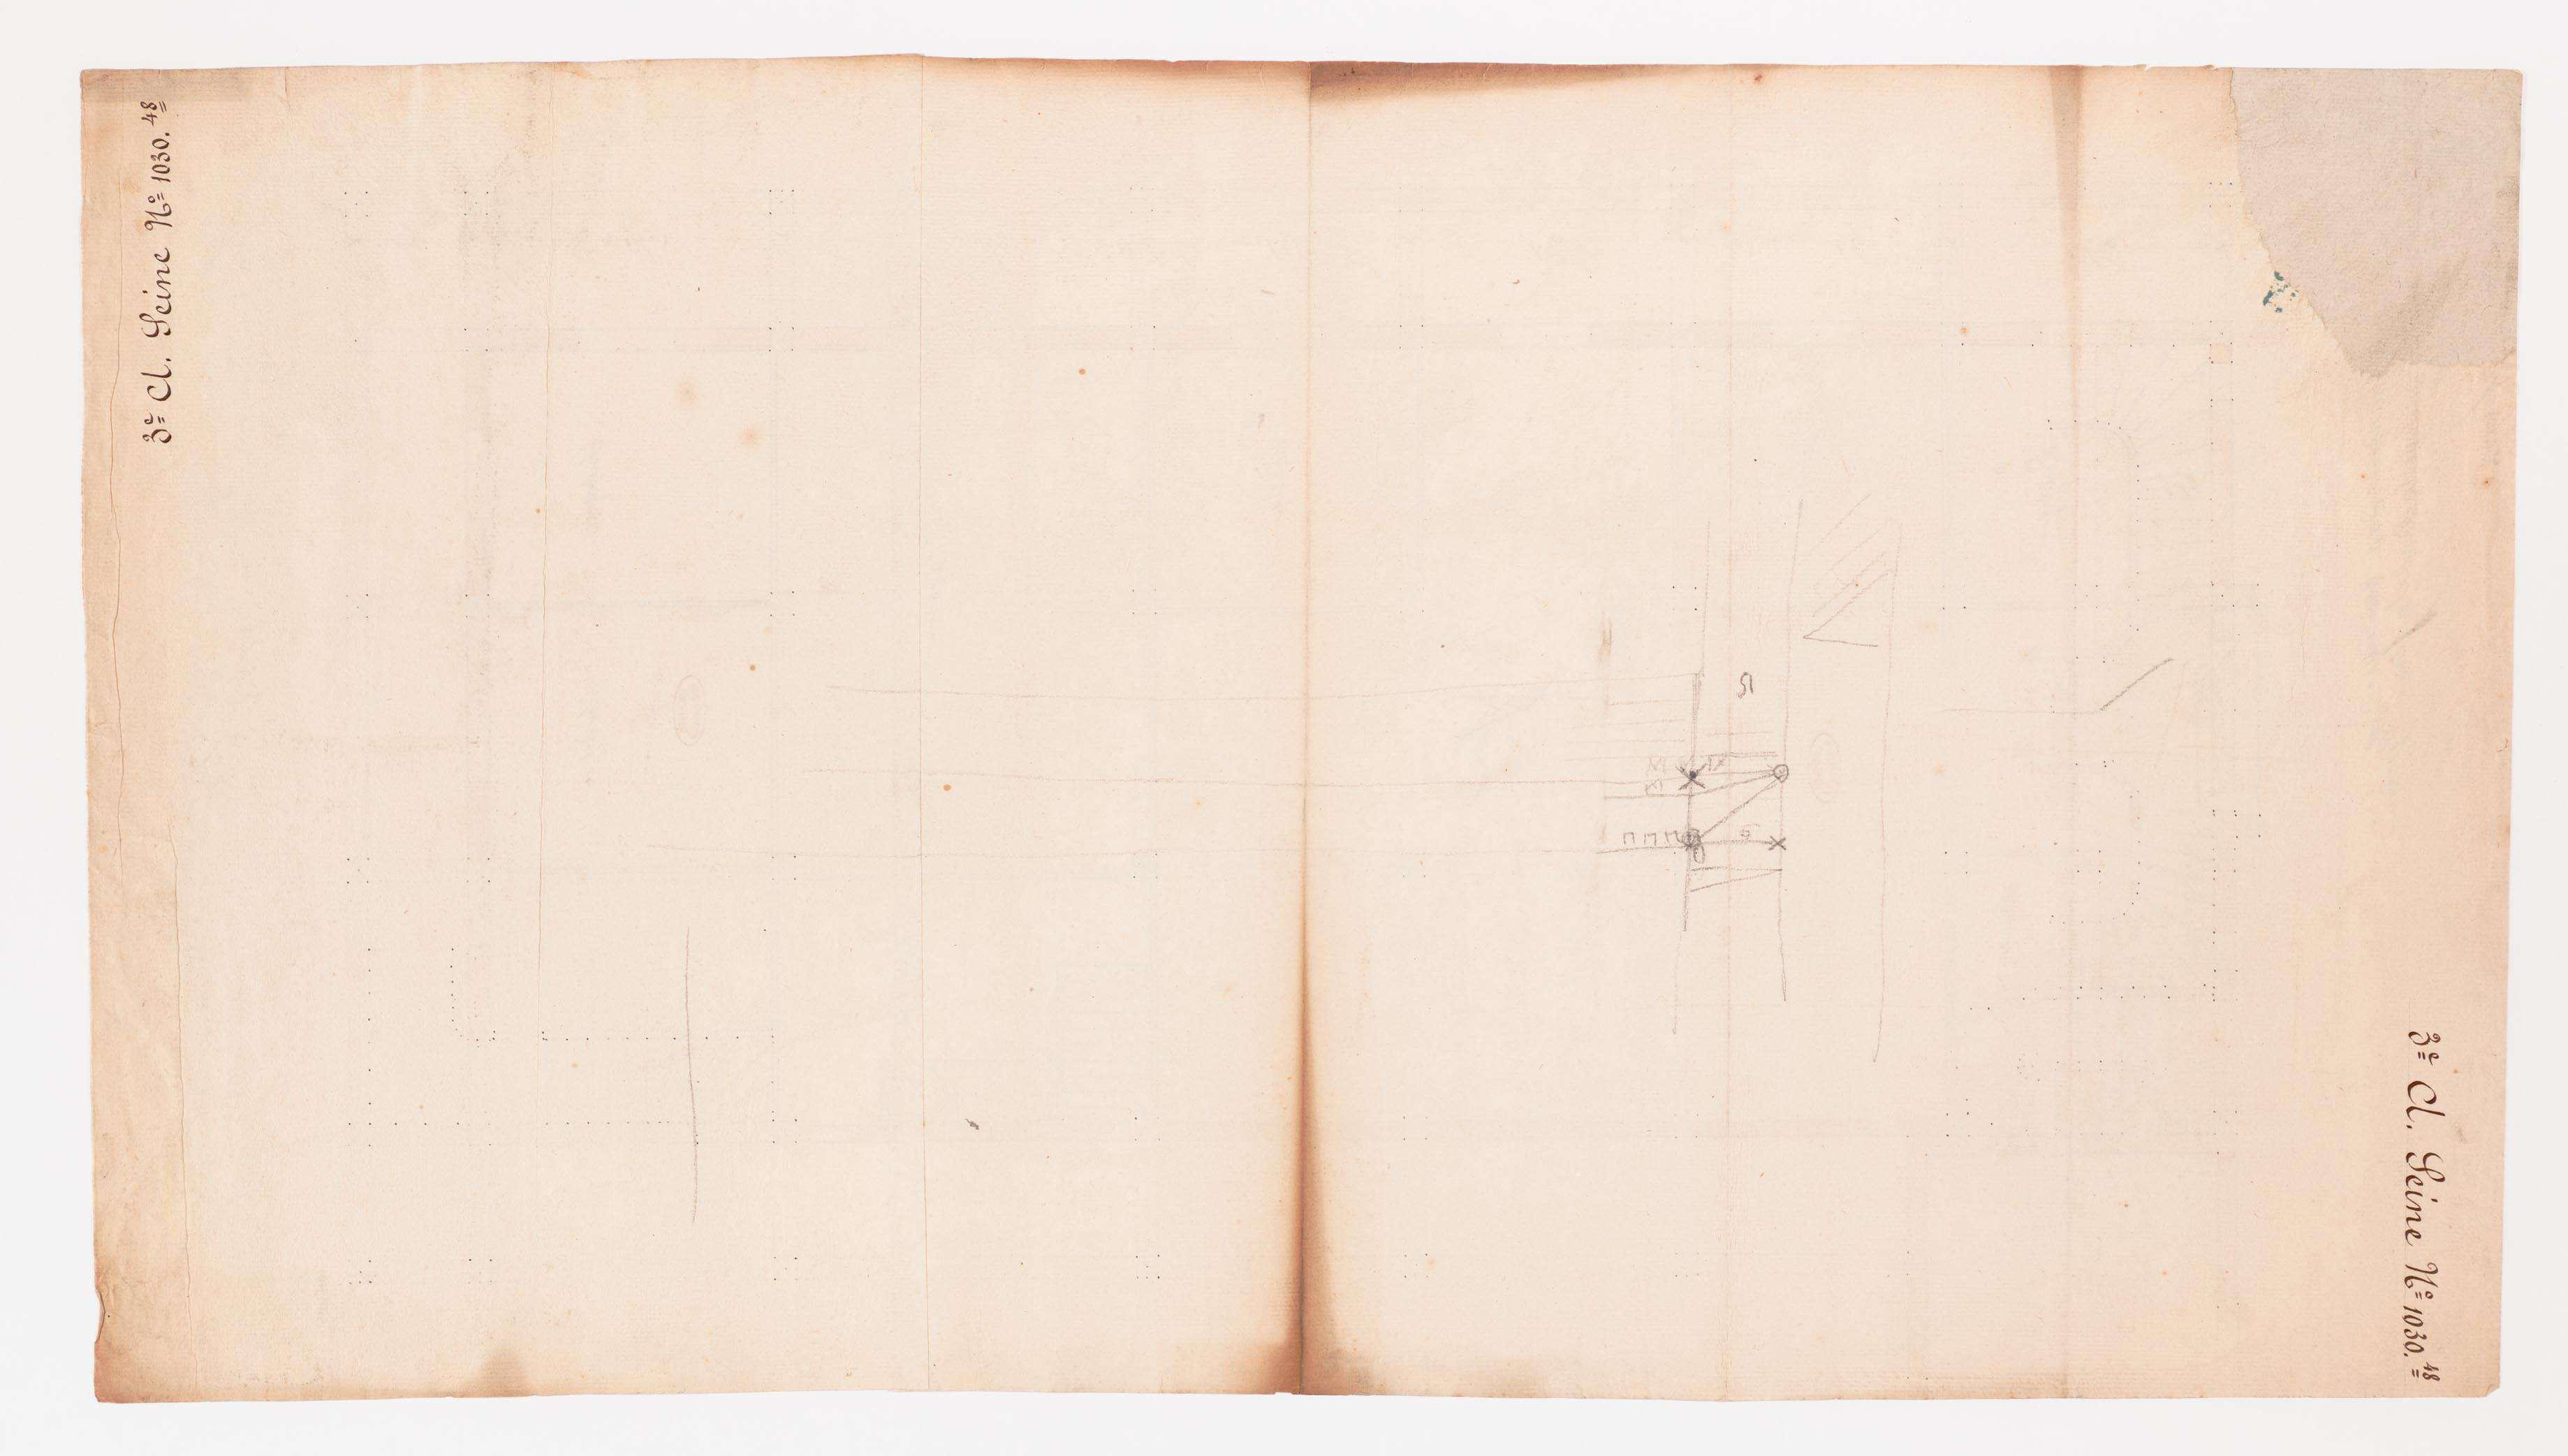 3e Cl. Seine No 1030.48
3e Cl. Seine No 1030.48